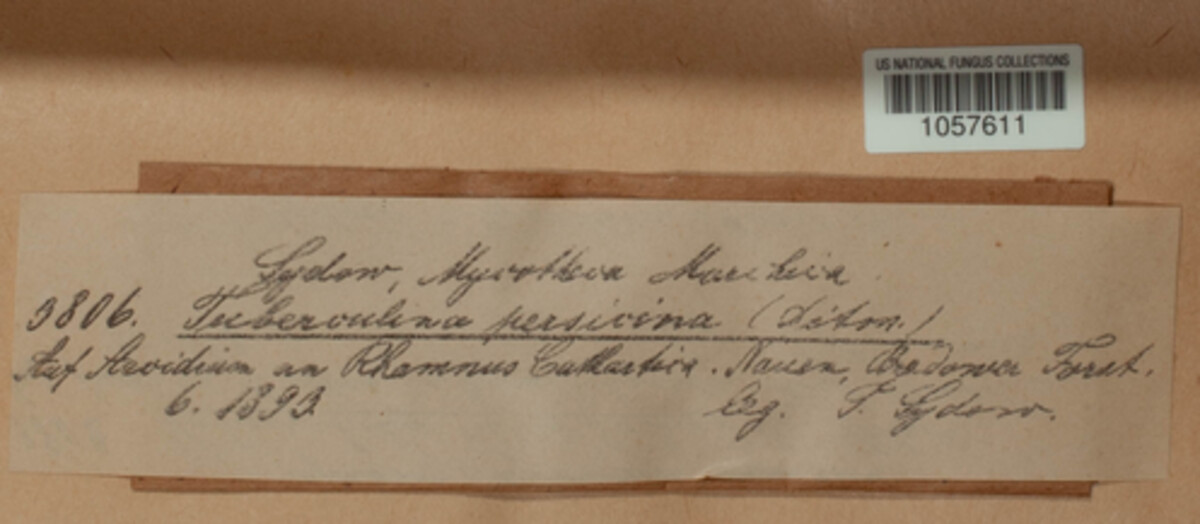 US NATIONAL FUNGUS COLLECTIONS
1057611
Sydow, Mycotheca Marchica
3806. Tuberculina persicina (Ditm.)
Auf Aecidium an Rhamnus Cathartica. Nauen, Bredower Forst.
6. 1893 lg. P. Sydow.